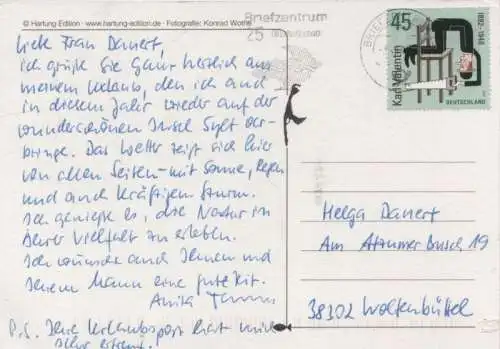 © Hartung Edition · www.hartung-edition.de · Fotografie: Konrad Wothe
Briefzentrum
25
45
1882-1948
Karl Valentin
DEUTSCHLAND
Liebe Frau Danert,
ich grüße Sie ganz herzlich aus
meinem Urlaub, den ich auch
in diesem Jahr wieder auf der
wunderschönen Insel Sylt ver-
bringe. Das Wetter zeigt sich hier
von allen Seiten - mit Sonne, Regen
und auch kräftigem Sturm.
Ich genieße es, die Natur in
ihrer Vielfalt zu erleben.
Ich wünsche auch Ihnen und
Ihrem Mann eine gute Zeit.
Anita
P.S. Ihre Urlaubspost hat mich
sehr erfreut.
Helga Danert
Am Atzumer Busch 19
38302 Wolfenbüttel